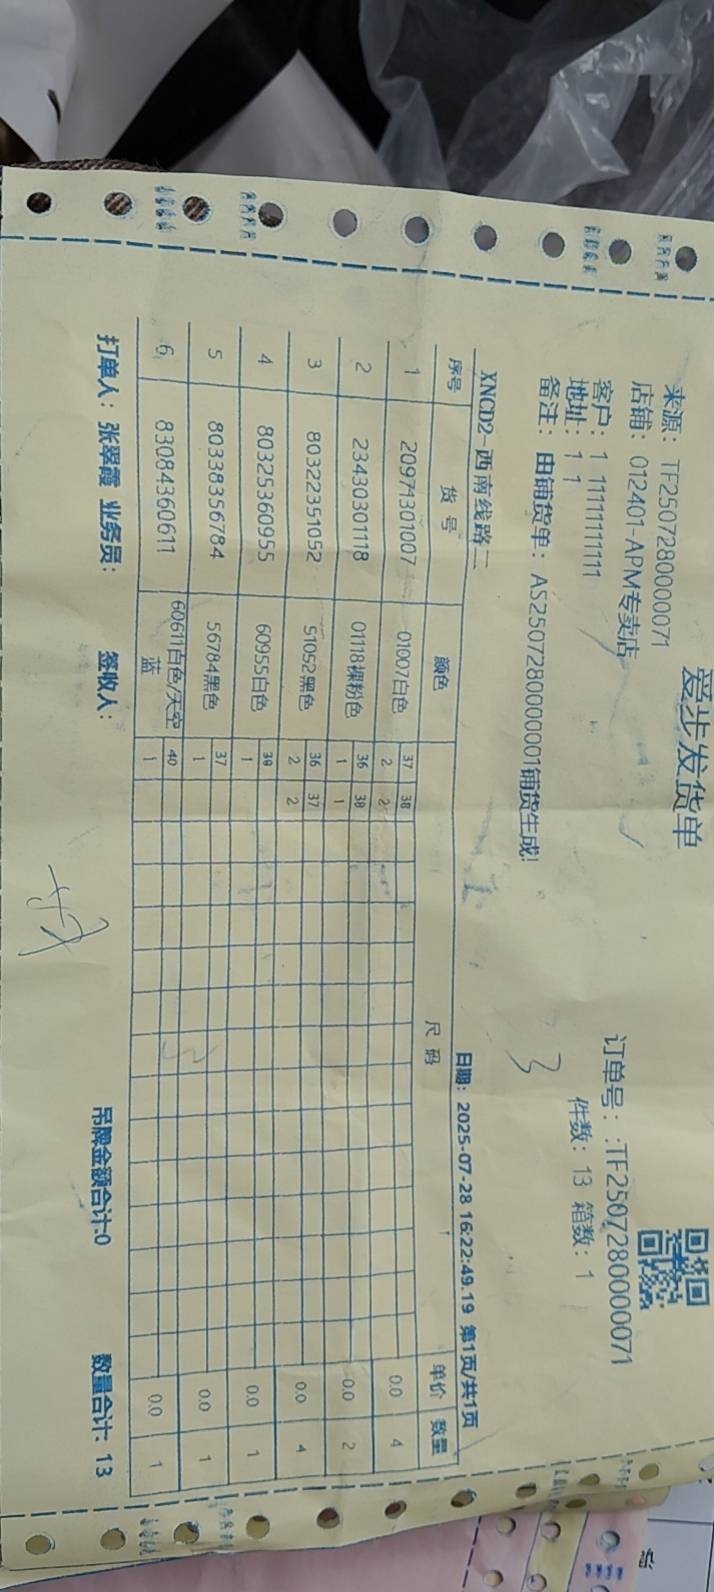 爱步发货单
来源：TF2507280000071
店铺：012401-APM专卖店
订单号：:TF2507280000071
客户：1 11111111111
件数：13 箱数：1
地址：1 1
备注：由铺货单：AS2507280000001铺货生成!
3
XNCD2-西南线路二 日期：2025-07-28 16:22:49.19 第1页/共1页
序号 货号 颜色 尺码 单价 数量
1 20971301007 01007白色 37 38 0.0 4
2 2
2 23430301118 01118裸粉色 36 38 0.0 2
1 1
3 80322351052 51052黑色 36 37 0.0 4
2 2
4 80325360955 60955白色 39 0.0 1
1
5 80338356784 56784黑色 37 0.0 1
1
6 83084360611 60611白色/天空 40 0.0 1
蓝 1
打单人：张翠霞 业务员： 签收人： 吊牌金额合计:0 数量合计：13